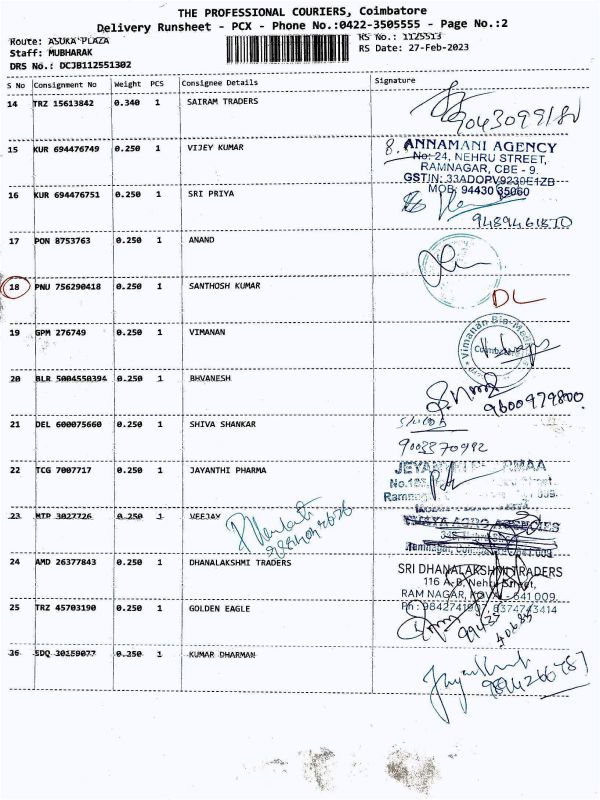 THE PROFESSIONAL COURIERS, Coimbatore
Delivery Runsheet - PCX - Phone No.:0422-3505555 - Page No.:2
Route: ASUKA PLAZA
Staff: MUBHARAK
DRS No.: DCJB112551302
RS No.: 1125513
RS Date: 27-Feb-2023
S No Consignment No Weight PCS Consignee Details Signature
14 TRZ 15613842 0.340 1 SAIRAM TRADERS
15 KUR 694476749 0.250 1 VIJEY KUMAR
ANNAMANI AGENCY
No: 24, NEHRU STREET,
RAMNAGAR, CBE - 9.
GSTIN: 33ADOPV9230E1ZB
MOB: 94430 35060
16 KUR 694476751 0.250 1 SRI PRIYA
17 PON 8753763 0.250 1 ANAND
18 PNU 756290418 0.250 1 SANTHOSH KUMAR
DL
19 GPM 276749 0.250 1 VIMANAN
Vimanan Bio-Med
20 BLR 5004550394 0.250 1 BHVANESH
9600979800
21 DEL 600075660 0.250 1 SHIVA SHANKAR
9003370992
22 TCG 7007717 0.250 1 JAYANTHI PHARMA
23 MTP 3027726 0.250 1 VEEJAY
VIJAYA AGRO AGENCIES
24 AMD 26377843 0.250 1 DHANALAKSHMI TRADERS
SRI DHANALAKSHMI TRADERS
116 A-B, Nehru Street,
RAM NAGAR, KOVAI - 641 009.
Ph : 9842741907, 6374743414
25 TRZ 45703190 0.250 1 GOLDEN EAGLE
26 SDQ 30159077 0.250 1 KUMAR DHARMAN